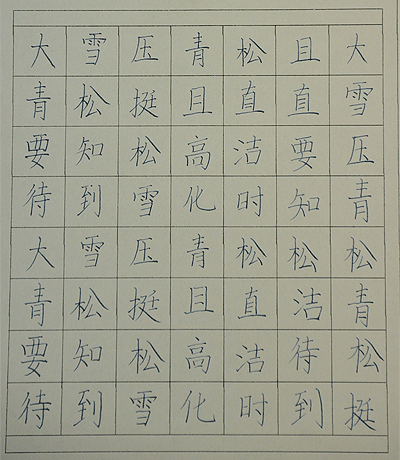 大雪压青松且大
青松挺且直直雪
要知松高洁要压
待到雪化时知青
大雪压青松松松
青松挺且直洁青
要知松高洁待松
待到雪化时到挺